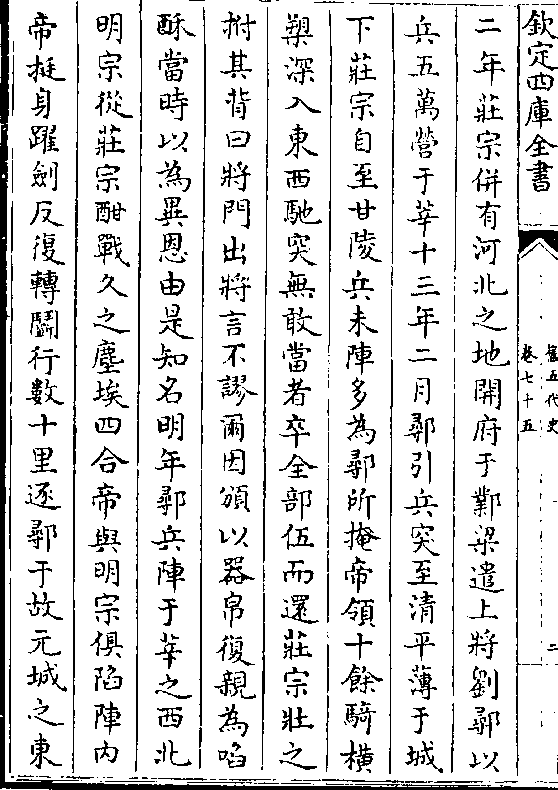 欽定四庫全書
舊五代史
卷七十五
二
二年莊宗併有河北之地開府于鄴梁遣上將劉鄩以
兵五萬營于莘十三年二月鄩引兵突至清平薄于城
下莊宗自至甘陵兵未陣多為鄩所掩帝領十餘騎橫
槊深入東西馳突無敢當者卒全部伍而還莊宗壯之
拊其背曰將門出將言不謬爾因頒以器帛復親為啗
酥當時以為異恩由是知名明年鄩兵陣于莘之西北
明宗從莊宗酣戰久之塵埃四合帝與明宗俱陷陣内
帝挺身躍劍反復轉鬭行數十里逐鄩于故元城之東